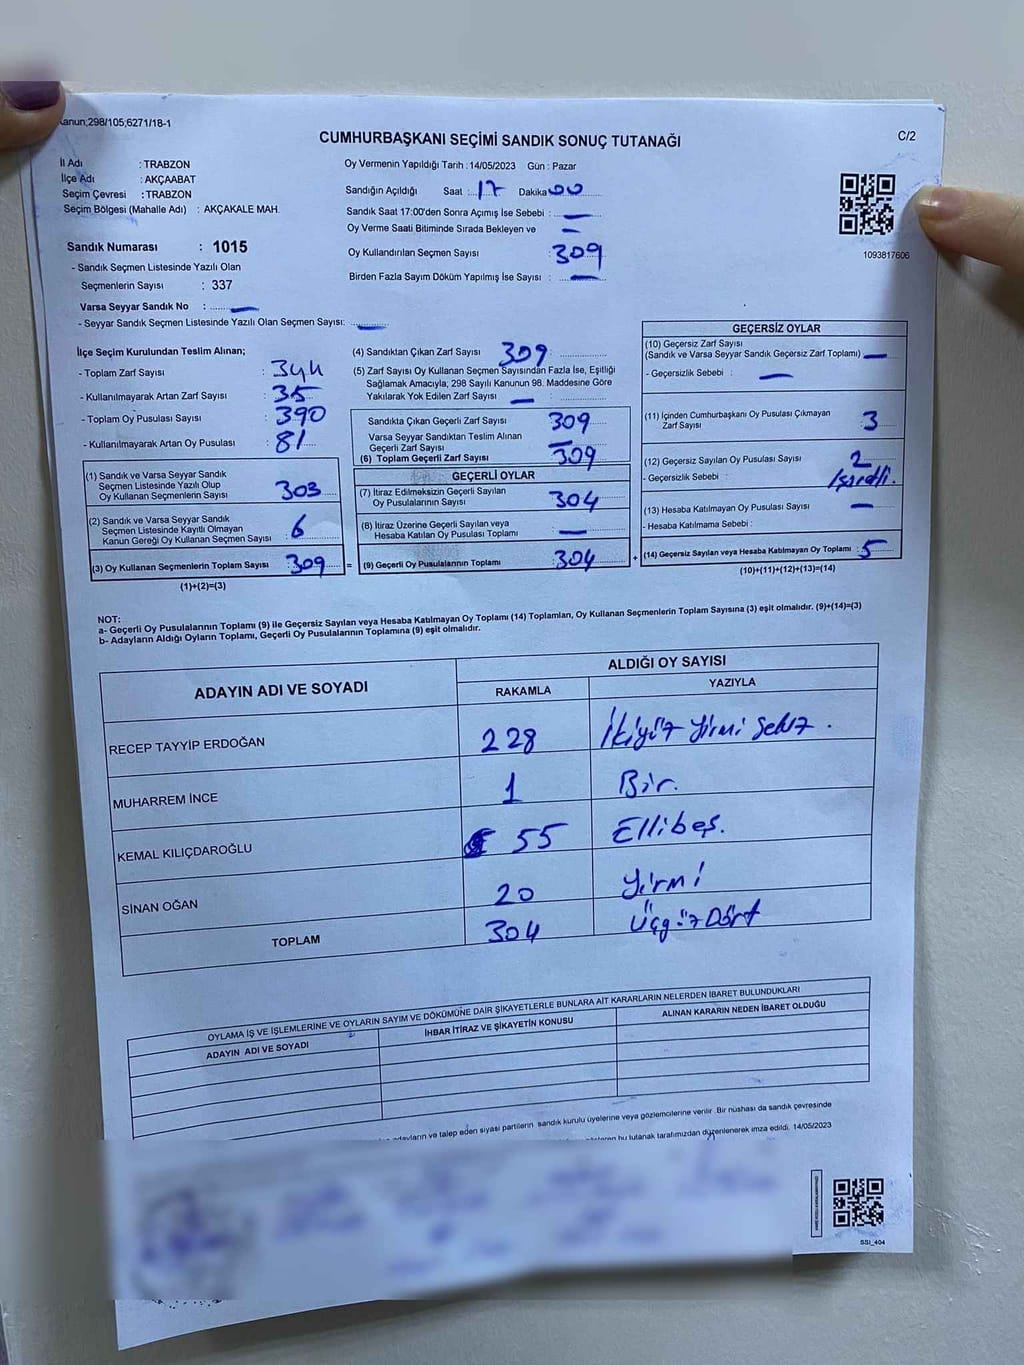 Kanun;298/105;6271/18-1
CUMHURBAŞKANI SEÇİMİ SANDIK SONUÇ TUTANAĞI
C/2
İl Adı : TRABZON
İlçe Adı : AKÇAABAT
Seçim Çevresi : TRABZON
Seçim Bölgesi (Mahalle Adı) : AKÇAKALE MAH.
Sandık Numarası : 1015
- Sandık Seçmen Listesinde Yazılı Olan
Seçmenlerin Sayısı : 337
Varsa Seyyar Sandık No : —
- Seyyar Sandık Seçmen Listesinde Yazılı Olan Seçmen Sayısı: —
Oy Vermenin Yapıldığı Tarih :14/05/2023 Gün : Pazar
Sandığın Açıldığı Saat : 17 Dakika 00
Sandık Saat 17:00'den Sonra Açımış İse Sebebi : —
Oy Verme Saati Bitiminde Sırada Bekleyen ve —
Oy Kullandırılan Seçmen Sayısı : 309
Birden Fazla Sayım Döküm Yapılmış İse Sayısı : —
1093817606
İlçe Seçim Kurulundan Teslim Alınan;
- Toplam Zarf Sayısı : 344
- Kullanılmayarak Artan Zarf Sayısı : 35
- Toplam Oy Pusulası Sayısı : 390
- Kullanılmayarak Artan Oy Pusulası : 81
(1) Sandık ve Varsa Seyyar Sandık
Seçmen Listesinde Yazılı Olup
Oy Kullanan Seçmenlerin Sayısı : 303
(2) Sandık ve Varsa Seyyar Sandık
Seçmen Listesinde Kayıtlı Olmayan
Kanun Gereği Oy Kullanan Seçmen Sayısı : 6
(3) Oy Kullanan Seçmenlerin Toplam Sayısı : 309
(1)+(2)=(3)
(4) Sandıktan Çıkan Zarf Sayısı : 309
(5) Zarf Sayısı Oy Kullanan Seçmen Sayısından Fazla İse, Eşitliği
Sağlamak Amacıyla, 298 Sayılı Kanunun 98. Maddesine Göre
Yakılarak Yok Edilen Zarf Sayısı : —
Sandıkta Çıkan Geçerli Zarf Sayısı : 309
Varsa Seyyar Sandıktan Teslim Alınan
Geçerli Zarf Sayısı : —
(6) Toplam Geçerli Zarf Sayısı : 309
GEÇERLİ OYLAR
(7) İtiraz Edilmeksizin Geçerli Sayılan
Oy Pusulalarının Sayısı : 304
(8) İtiraz Üzerine Geçerli Sayılan veya
Hesaba Katılan Oy Pusulası Toplamı : —
= (9) Geçerli Oy Pusulalarının Toplamı : 304 +
GEÇERSİZ OYLAR
(10) Geçersiz Zarf Sayısı
(Sandık ve Varsa Seyyar Sandık Geçersiz Zarf Toplamı) : —
- Geçersizlik Sebebi : —
(11) İçinden Cumhurbaşkanı Oy Pusulası Çıkmayan
Zarf Sayısı : 3
(12) Geçersiz Sayılan Oy Pusulası Sayısı : 2
- Geçersizlik Sebebi : İşaretli.
(13) Hesaba Katılmayan Oy Pusulası Sayısı : —
- Hesaba Katılmama Sebebi :
(14) Geçersiz Sayılan veya Hesaba Katılmayan Oy Toplamı : 5
(10)+(11)+(12)+(13)=(14)
NOT:
a- Geçerli Oy Pusulalarının Toplamı (9) ile Geçersiz Sayılan veya Hesaba Katılmayan Oy Toplamı (14) Toplamları, Oy Kullanan Seçmenlerin Toplam Sayısına (3) eşit olmalıdır. (9)+(14)=(3)
b- Adayların Aldığı Oyların Toplamı, Geçerli Oy Pusulalarının Toplamına (9) eşit olmalıdır.
ADAYIN ADI VE SOYADI
ALDIĞI OY SAYISI
RAKAMLA YAZIYLA
RECEP TAYYİP ERDOĞAN 228 İkiyüz yirmi sekiz.
MUHARREM İNCE 1 Bir.
KEMAL KILIÇDAROĞLU 55 Ellibeş.
SİNAN OĞAN 20 Yirmi
TOPLAM 304 Üçyüz Dört
OYLAMA İŞ VE İŞLEMLERİNE VE OYLARIN SAYIM VE DÖKÜMÜNE DAİR ŞİKAYETLERLE BUNLARA AİT KARARLARIN NELERDEN İBARET BULUNDUKLARI
ADAYIN ADI VE SOYADI İHBAR İTİRAZ VE ŞİKAYETİN KONUSU ALINAN KARARIN NEDEN İBARET OLDUĞU
adayların ve talep eden siyasi partilerin sandık kurulu üyelerine veya gözlemcilerine verilir .Bir nüshası da sandık çevresinde
bu tutanak tarafımızdan düzenlenerek imza edildi. 14/05/2023
SSI_404